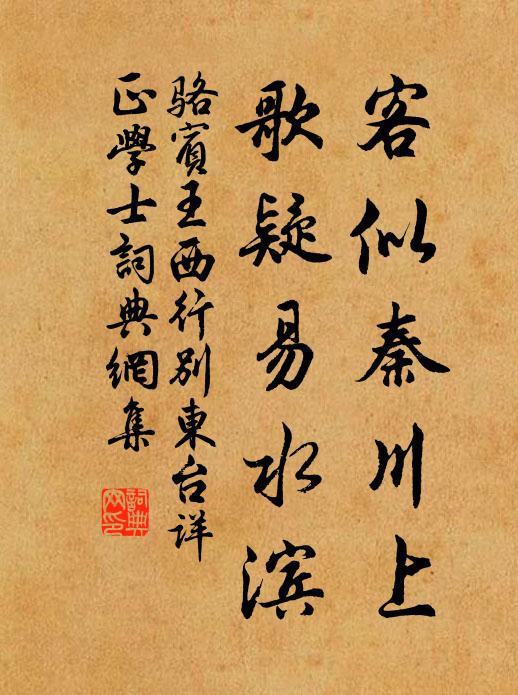 客似秦川上
歌疑易水滨
骆賓王西行别東台详
正學士詞典網集
詞典
网印